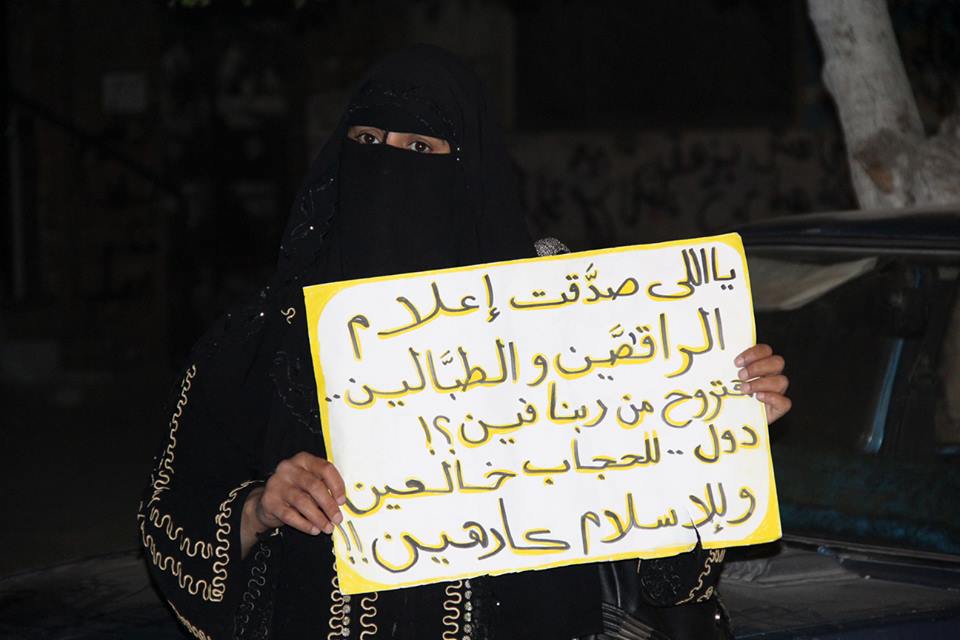 يااللى صدَّقت إعلام
الراقصَّين والطبَّالين..
هتروح من ربنا فين؟!
دول.. للحجاب خالعين
وللإسلام كارهين!!